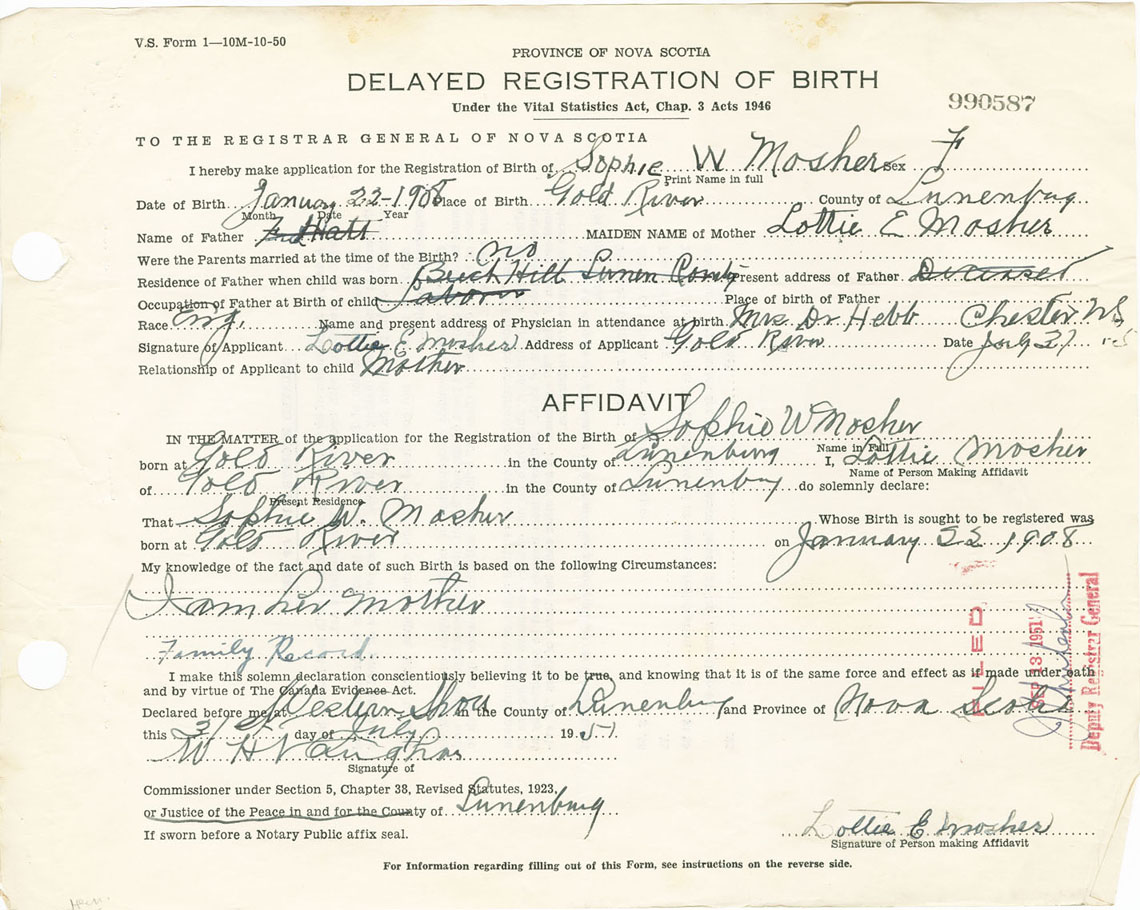 V.S. Form 1—10M-10-50
PROVINCE OF NOVA SCOTIA
DELAYED REGISTRATION OF BIRTH
Under the Vital Statistics Act, Chap. 3 Acts 1946
990587
TO THE REGISTRAR GENERAL OF NOVA SCOTIA
I hereby make application for the Registration of Birth of Sophie W Mosher Sex F
Print Name in full
Date of Birth January 22-1908 Place of Birth Gold River County of Lunenburg
Month Date Year
Name of Father Hatt MAIDEN NAME of Mother Lottie E Mosher
Were the Parents married at the time of the Birth? no
Residence of Father when child was born Beech Hill Lunen County Present address of Father Deceased
Occupation of Father at Birth of child Laborer Place of birth of Father
Race Eng. Name and present address of Physician in attendance at birth Mrs Dr Hebb Chester NS
Signature of Applicant Lottie E Mosher Address of Applicant Gold River Date July 27
Relationship of Applicant to child Mother
AFFIDAVIT
IN THE MATTER of the application for the Registration of the Birth of Sophie W Mosher
Name in Full
born at Gold River in the County of Lunenburg I, Lottie Mosher
Name of Person Making Affidavit
of Gold River in the County of Lunenburg do solemnly declare:
Present Residence
That Sophie W. Mosher Whose Birth is sought to be registered was
born at Gold River on January 22 1908
My knowledge of the fact and date of such Birth is based on the following Circumstances:
I am her mother
Family Record
I make this solemn declaration conscientiously believing it to be true, and knowing that it is of the same force and effect as if made under oath
and by virtue of The Canada Evidence Act.
Declared before me at Western Shore in the County of Lunenburg and Province of Nova Scotia
this 31st day of July 1951
W H Vaughan
Signature of
Commissioner under Section 5, Chapter 38, Revised Statutes, 1923,
or Justice of the Peace in and for the County of Lunenburg
If sworn before a Notary Public affix seal.
Lottie E Mosher
Signature of Person making Affidavit
For Information regarding filling out of this Form, see instructions on the reverse side.
FILED
SEP 13 1951
Deputy Registrar General